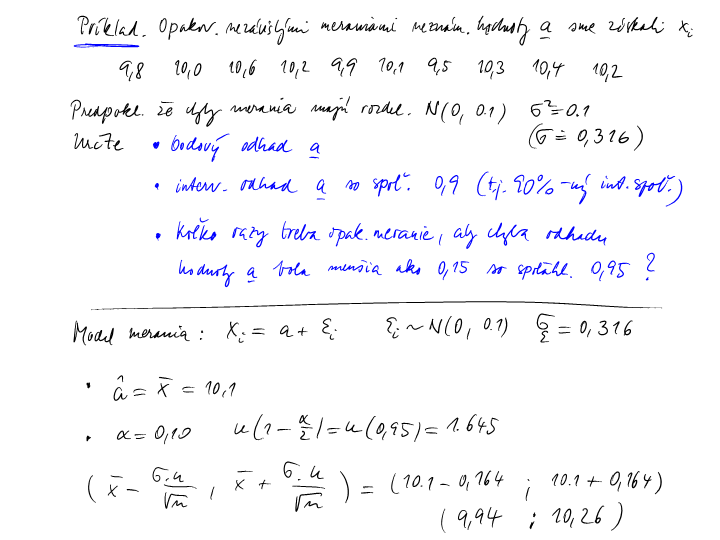 Príklad. Opakov. nezávislými meraniami neznám. hodnoty a sme získali xᵢ
9,8 10,0 10,6 10,2 9,9 10,1 9,5 10,3 10,4 10,2
Predpokl. že chyby merania majú rozdel. N(0, 0.1) σ²=0.1
(σ ≐ 0,316)
Určte • bodový odhad a
• interv. odhad a so spoľ. 0,9 (t.j. 90%-ný int. spoľ.)
• koľko razy treba opak. meranie, aby chyba odhadu
hodnoty a bola menšia ako 0,15 so spoľahl. 0,95 ?
Model merania : Xᵢ = a + εᵢ εᵢ ~ N(0, 0.1) σ_ε = 0,316
• â = x̄ = 10,1
• α = 0,10 u(1 - α/2) = u(0,95) = 1.645
(x̄ - σ.u/√n , x̄ + σ.u/√n) = (10.1 - 0,164 ; 10.1 + 0,164)
(9,94 ; 10,26)